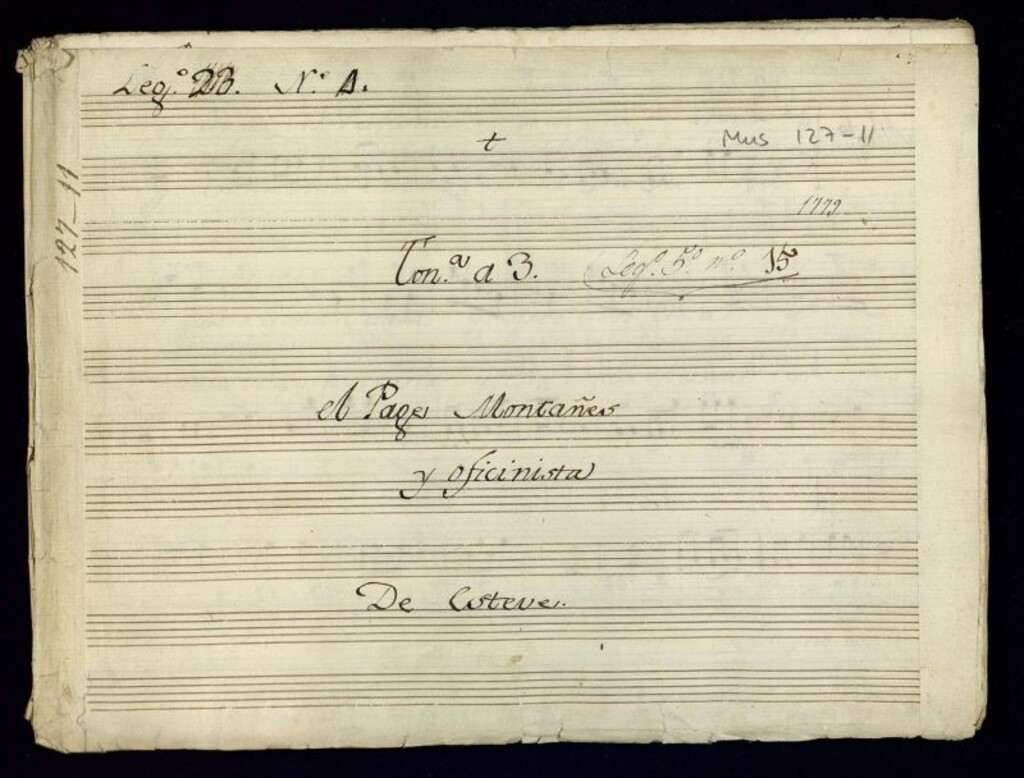 Leg.º 23. N.º 1.
t
Mus 127-11
1779
127-11
Ton.ª a 3. Leg.º 5.º n.º 15
el Page Montañes
y oficinista
De Esteve.